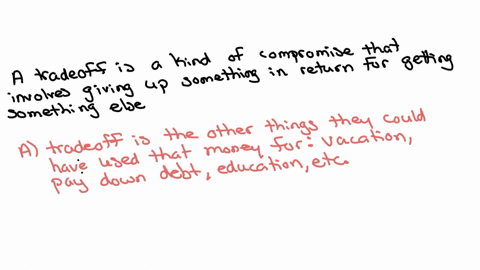 A tradeoff is a kind of compromise that
involves giving up something in return for getting
something else
A) tradeoff is the other things they could
have used that money for: vacation,
pay down debt, education, etc.